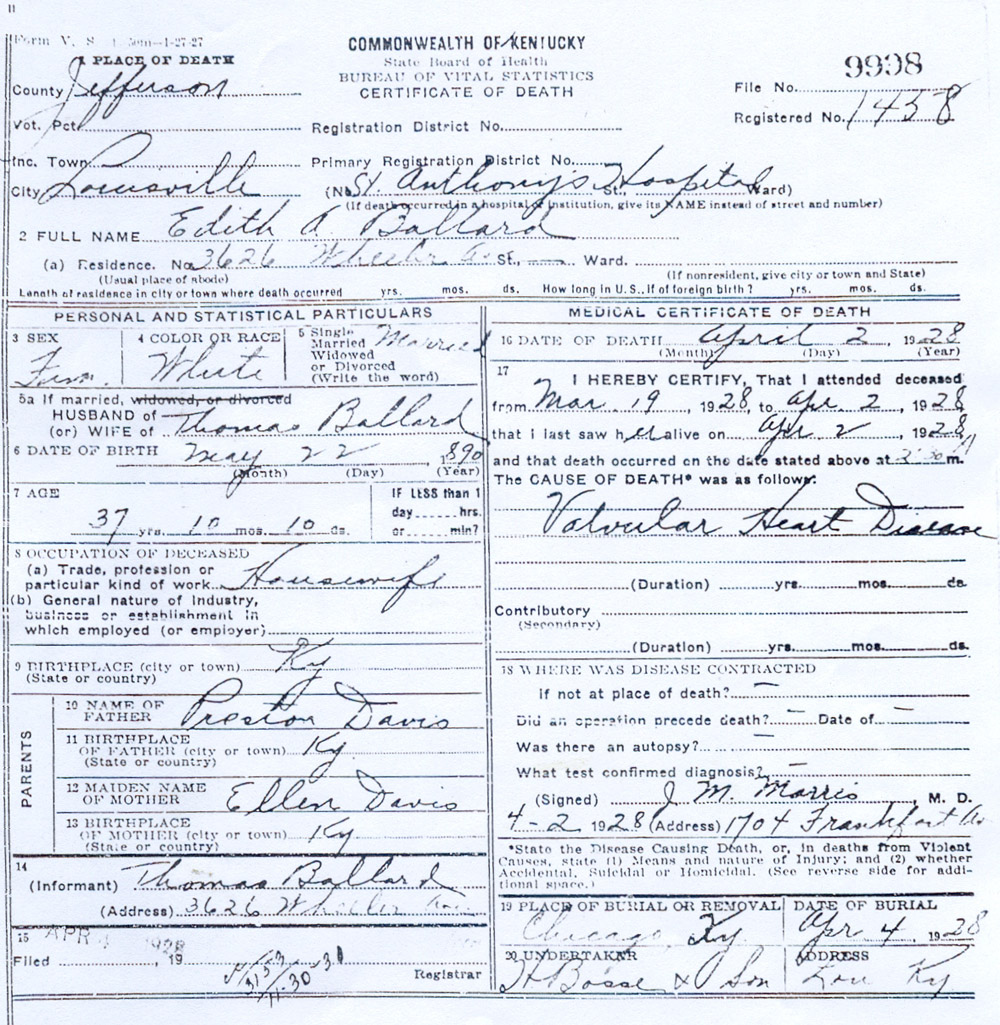 11
Form V. S. 1 50m—1-27-27
COMMONWEALTH OF KENTUCKY
State Board of Health
BUREAU OF VITAL STATISTICS
CERTIFICATE OF DEATH
9998
File No.
Registered No. 1458
1 PLACE OF DEATH
County Jefferson
Vot. Pct.
Registration District No.
Inc. Town
Primary Registration District No.
City Louisville (No. St. Anthony's Hospital St. Ward)
(If death occurred in a hospital or institution, give its NAME instead of street and number)
2 FULL NAME Edith A. Ballard
(a) Residence. No. 3626 Wheeler Av St., — Ward.
(Usual place of abode) (If nonresident, give city or town and State)
Length of residence in city or town where death occurred yrs. mos. ds. How long in U. S., if of foreign birth? yrs. mos. ds.
PERSONAL AND STATISTICAL PARTICULARS
3 SEX Fem.
4 COLOR OR RACE White
5 Single Married Widowed or Divorced (Write the word) Married
5a If married, widowed, or divorced
HUSBAND of
(or) WIFE of Thomas Ballard
6 DATE OF BIRTH May 22 1890
(Month) (Day) (Year)
7 AGE
37 yrs. 10 mos. 10 ds.
IF LESS than 1
day hrs.
or min?
8 OCCUPATION OF DECEASED
(a) Trade, profession or
particular kind of work Housewife
(b) General nature of Industry,
business or establishment in
which employed (or employer)
9 BIRTHPLACE (city or town) Ky
(State or country)
PARENTS
10 NAME OF
FATHER Preston Davis
11 BIRTHPLACE
OF FATHER (city or town) Ky
(State or country)
12 MAIDEN NAME
OF MOTHER Ellen Davis
13 BIRTHPLACE
OF MOTHER (city or town) Ky
(State or country)
14
(Informant) Thomas Ballard
(Address) 3626 Wheeler Ave
15 APR 1928
Filed , 19
Registrar
11-30-31
MEDICAL CERTIFICATE OF DEATH
16 DATE OF DEATH April 2, 1928
(Month) (Day) (Year)
17
I HEREBY CERTIFY, That I attended deceased
from Mar. 19, 1928, to Apr. 2, 1928
that I last saw her alive on Apr 2, 1928
and that death occurred on the date stated above at m.
The CAUSE OF DEATH* was as follows:
Valvular Heart Disease
(Duration) yrs. mos. ds.
Contributory
(Secondary)
(Duration) yrs. mos. ds.
18 WHERE WAS DISEASE CONTRACTED
if not at place of death? —
Did an operation precede death? — Date of —
Was there an autopsy? —
What test confirmed diagnosis? —
(Signed) J. M. Morris, M. D.
4-2 1928 (Address) 1704 Frankfort Av
*State the Disease Causing Death, or, in deaths from Violent
Causes, state (1) Means and nature of Injury; and (2) whether
Accidental, Suicidal or Homicidal. (See reverse side for addi-
tional space.)
19 PLACE OF BURIAL OR REMOVAL
Chicago, Ky
DATE OF BURIAL
Apr 4, 1928
20 UNDERTAKER
H Bosse & Son
ADDRESS
Lou Ky